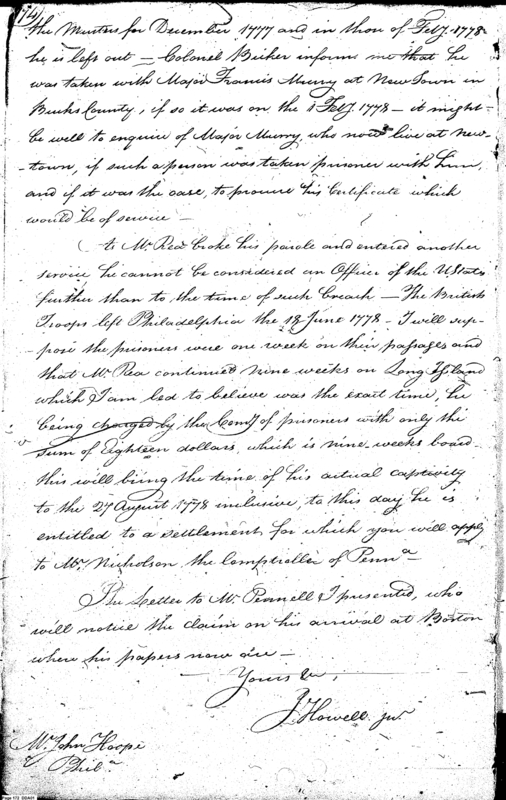 74)
the Musters for December 1777 and in those of Feby. 1778
he is left out — Colonel Bicker informs me that he
was taken with Major Francis Murry at New Town in
Bucks County, if so it was on the 1 Feby. 1778 — it might
be well to enquire of Major Murry, who now live at New-
-town, if such a person was taken prisoner with him,
and if it was the case, to procure his Certificate which
would be of service —
As Mr. Rea broke his parole and entered another
service he cannot be considered an Officer of the U States
further than to the time of such breach — The British
Troops left Philadelphia the 18 June 1778 - I will sup-
-pose the prisoners were one week on their passages and
that Mr. Rea continued nine weeks on Long Island
which I am led to believe was the exact time, he
being charged by the Comy. of prisoners with only the
sum of Eighteen dollars, which is nine weeks board
this will bring the time of his actual captivity
to the 27 August 1778 inclusive, to this day he is
entitled to a settlement for which you will apply
to Mr. Nicholson the Comptroller of Penna.—
The Letter to Mr. Pennell I presented, who
will notice the claim on his arrival at Boston
where his papers now are —
Yours &c,
J Howell junr.
Mr. John Hoops
Phila.